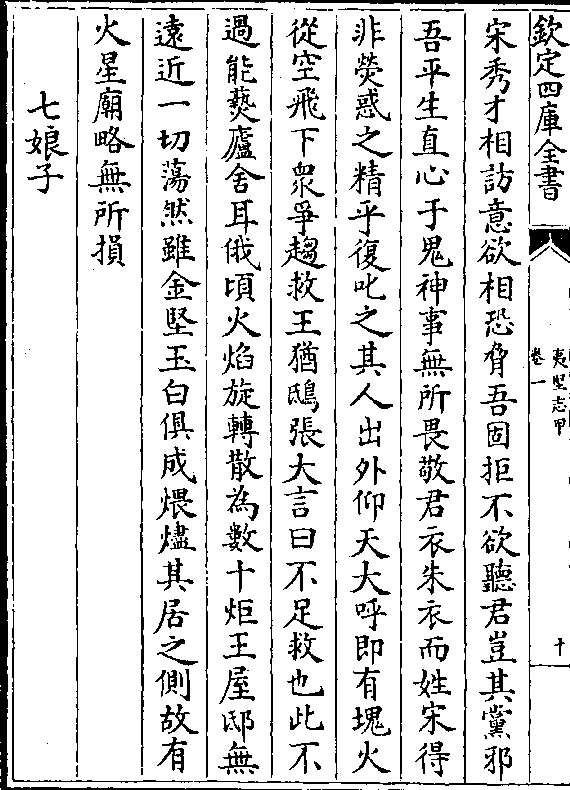 欽定四庫全書
夷堅志甲
卷一
十
宋秀才相訪意欲相恐脅吾固拒不欲聽君豈其黨邪
吾平生直心于鬼神事無所畏敬君衣朱衣而姓宋得
非熒惑之精乎復叱之其人出外仰天大呼即有塊火
從空飛下衆爭趨救王猶鴟張大言曰不足救也此不
過能爇廬舍耳俄頃火焰旋轉散為數十炬王屋邸無
逺近一切蕩然雖金堅玉白俱成煨燼其居之側故有
火星廟略無所損
七娘子